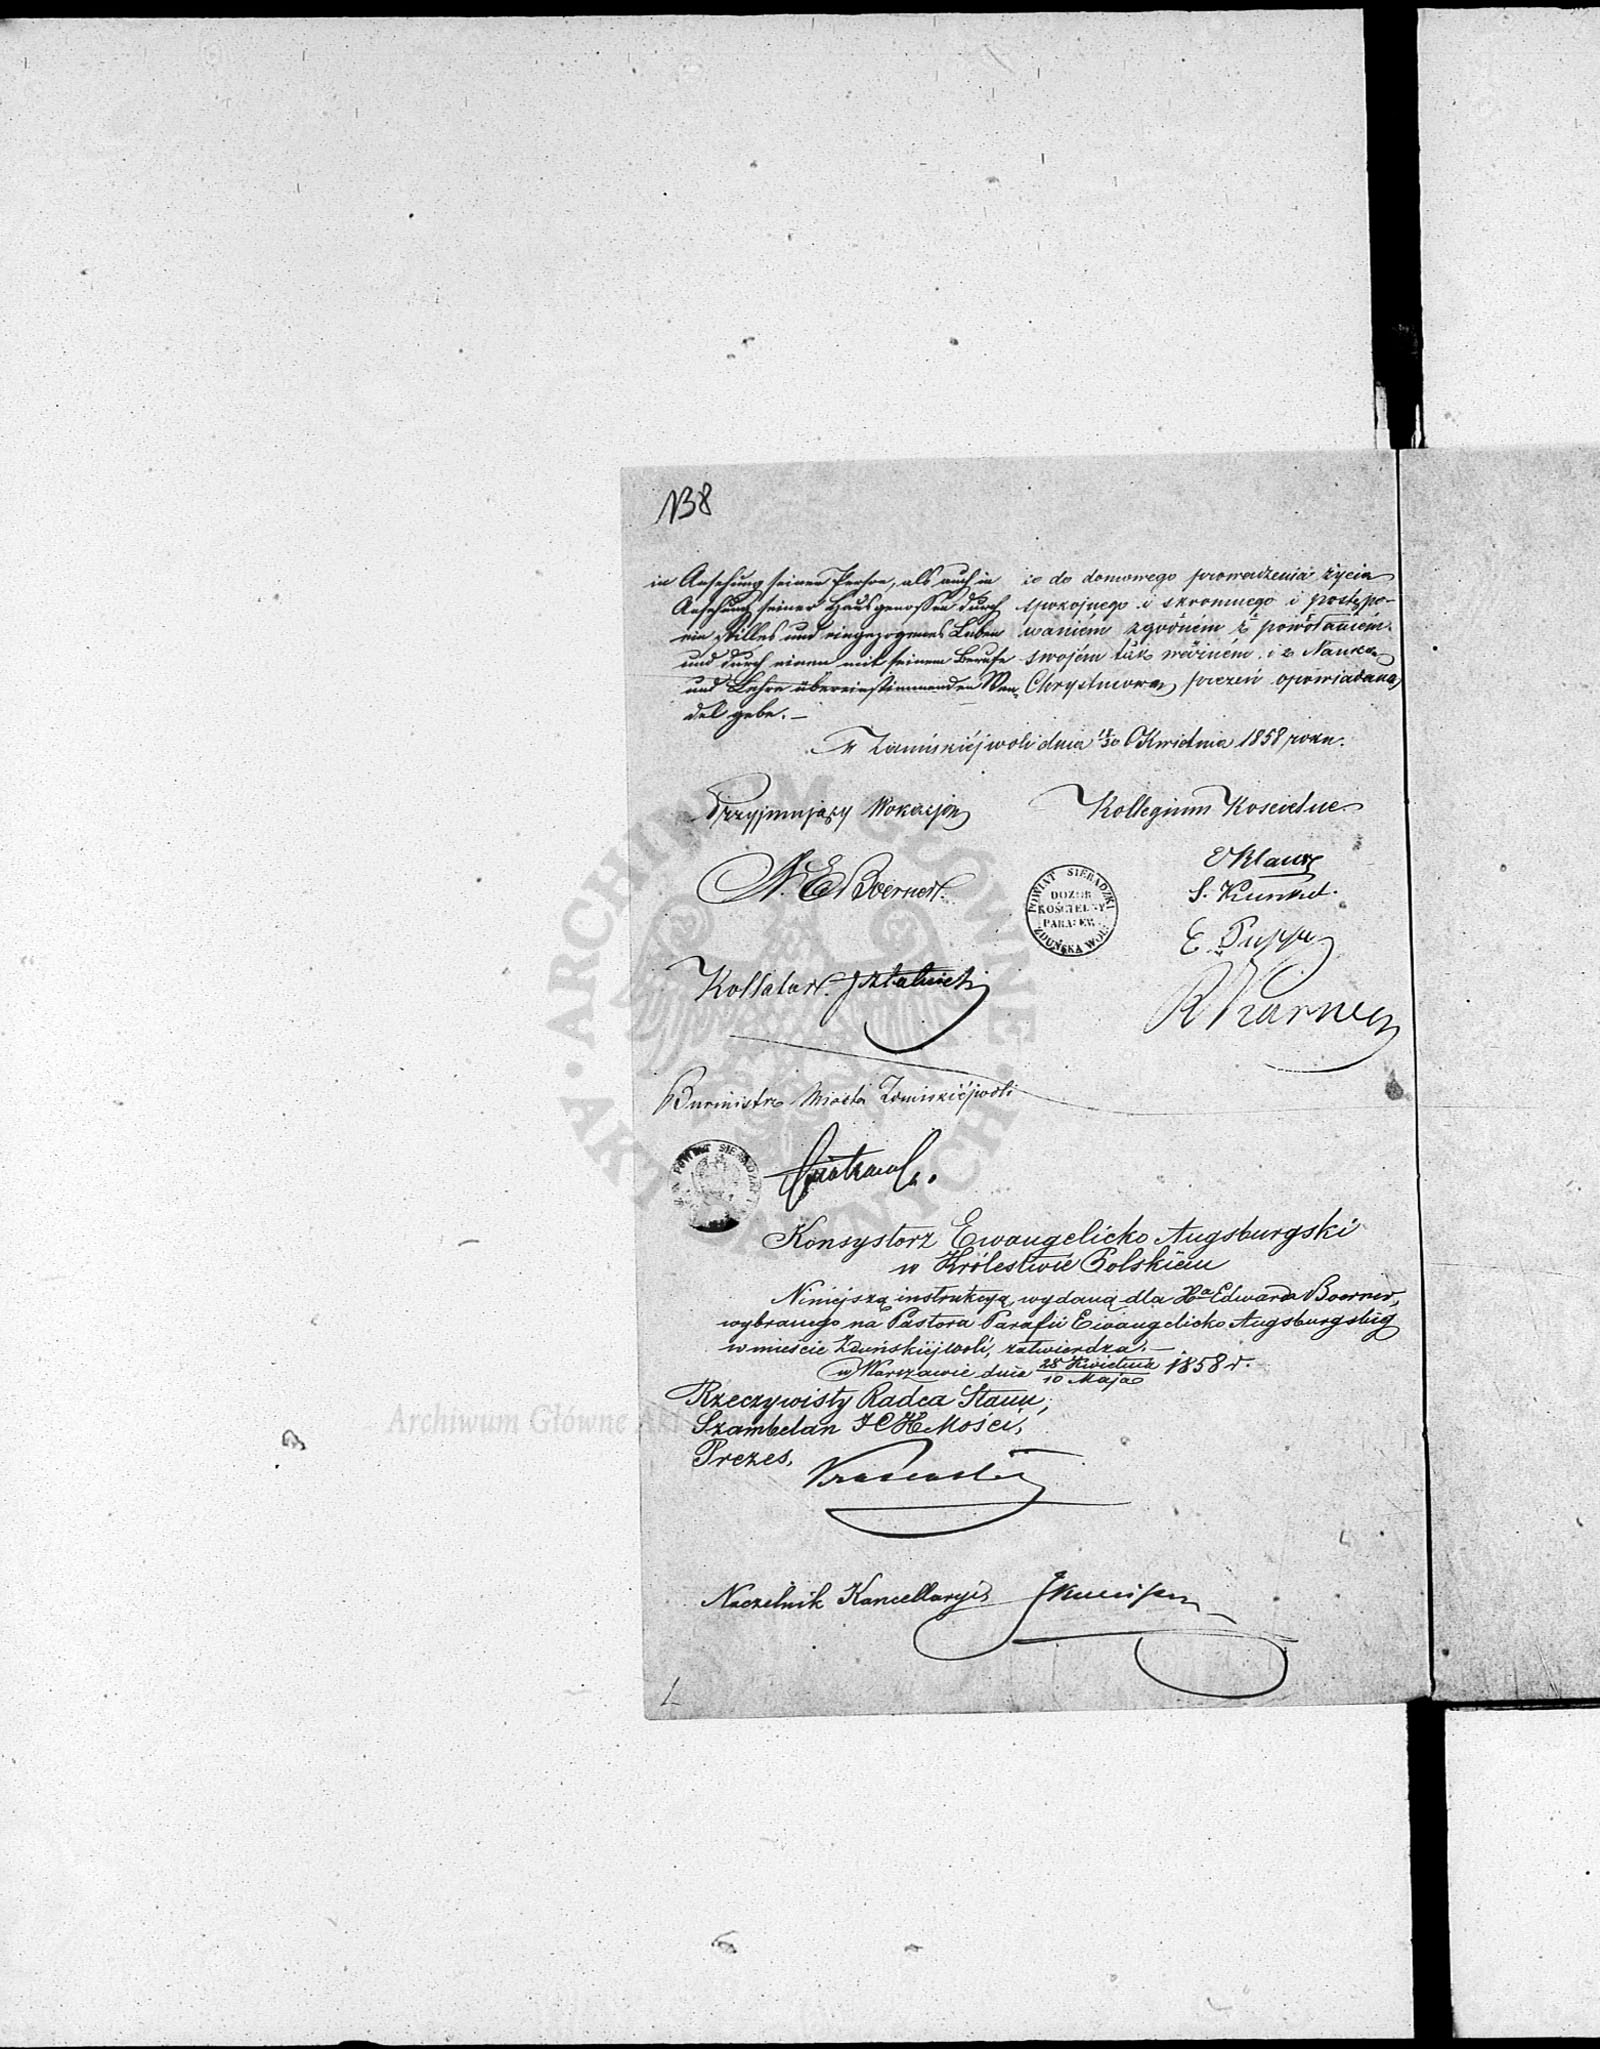 N38
in Ansehung seiner Person, als auch in
Ansehung seiner Hausgenossen durch
ein stilles und eingezogenes Leben
und durch einen mit seinem Berufe
und Lehre übereinstimmenden Wan-
del gebe. —
io do domowego prowadzenia życia
spokojnego i skromnego i postępo-
waniem zgodnem z powołaniem
swojém i z Nauką
Chrystusową przezeń opowiadaną
w Zduńskiéjwoli dnia 18/30 Kwietnia 1858 roku.
Przyjmujący Wokacyją
Kollegium Kościelne
N. E. Boerner.
E Klauze
S. Kunkel.
E. Puppe
POWIAT SIERADZKI
DOZÓR
KOŚCIELNY
PARAF. EW.
ZDUŃSKA WOL.
Kollator.
Burmistrz Miasta Zduńskiéjwoli
POWIAT SIERADZKI
Konsystorz Ewangelicko Augsburgski
w Królestwie Polskiém
Niniejszą instrukcyą, wydaną dla Xa Edwarda Boerner,
wybranego na Pastora Parafii Ewangelicko Augsburgskiéj
w mieście Zduńskiéjwoli, zatwierdza. —
w Warszawie dnia 28 Kwietnia / 10 Maja 1858 r.
Rzeczywisty Radca Stanu,
Szambelan JCKMości,
Prezes,
Naczelnik Kancellaryi
ARCHIWUM GŁÓWNE
AKT DAWNYCH
Archiwum Główne Akt